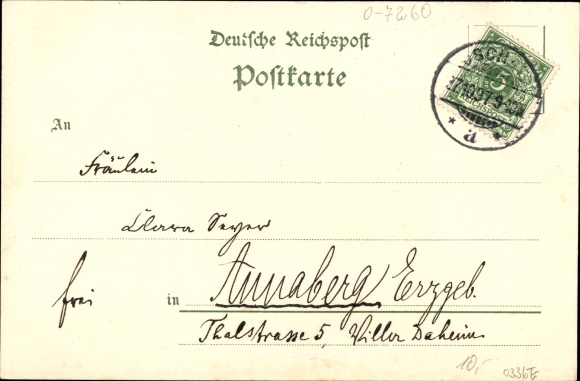 0-7260
Deutsche Reichspost
Postkarte
5
* a *
An
Fräulein
Clara Seyer
frei
in Annaberg Erzgeb.
Thalstrasse 5, Villa Daheim
10,-
0336E